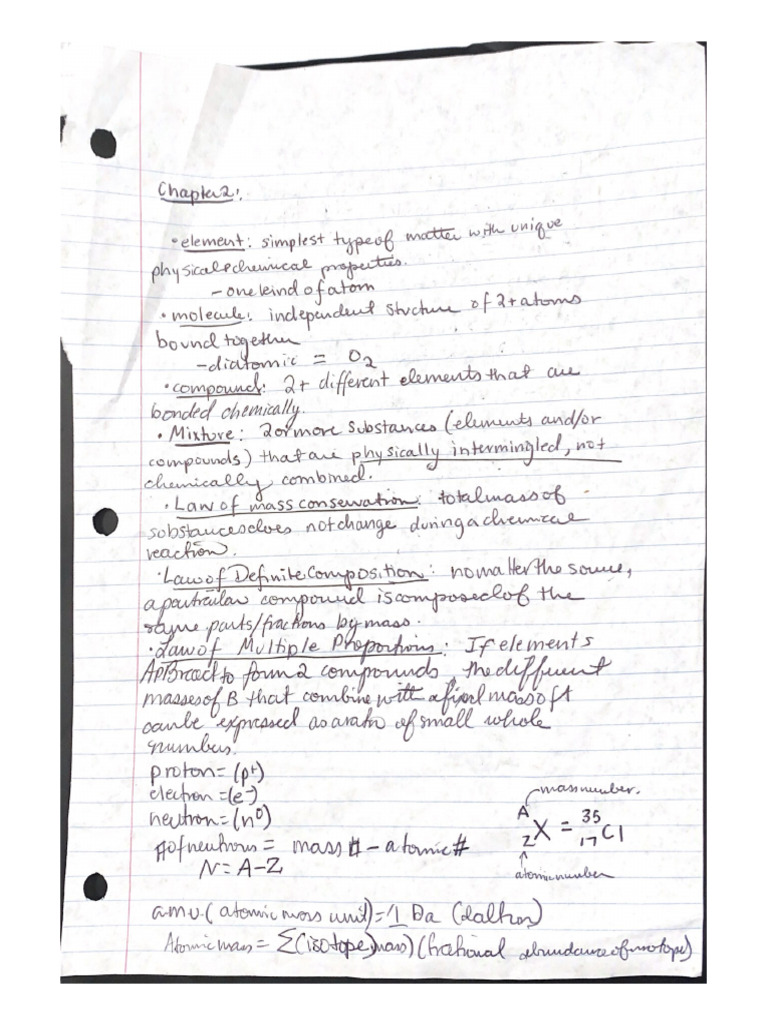 Chapter 2:
• element: simplest type of matter with unique
physical & chemical properties.
- one kind of atom
• molecule: independent structure of 2+ atoms
bound together
- diatomic = O₂
• compound: 2+ different elements that are
bonded chemically.
• Mixture: 2 or more substances (elements and/or
compounds) that are physically intermingled, not
chemically combined.
• Law of mass conservation: total mass of
substances does not change during a chemical
reaction.
• Law of Definite Composition: no matter the source,
a particular compound is composed of the
same parts/fractions by mass.
• Law of Multiple Proportions: If elements
A & B react to form 2 compounds, the different
masses of B that combine with a fixed mass of A
can be expressed as a ratio of small whole
numbers.
proton = (p⁺)
electron = (e⁻)
neutron = (n⁰)
# of neutrons = mass # - atomic #
N = A-Z
mass number.
A Z X = 35 17 Cl
atomic number
a.m.u. (atomic mass unit) = 1 Da (dalton)
Atomic mass = Σ(isotope mass)(fractional abundance of isotope)